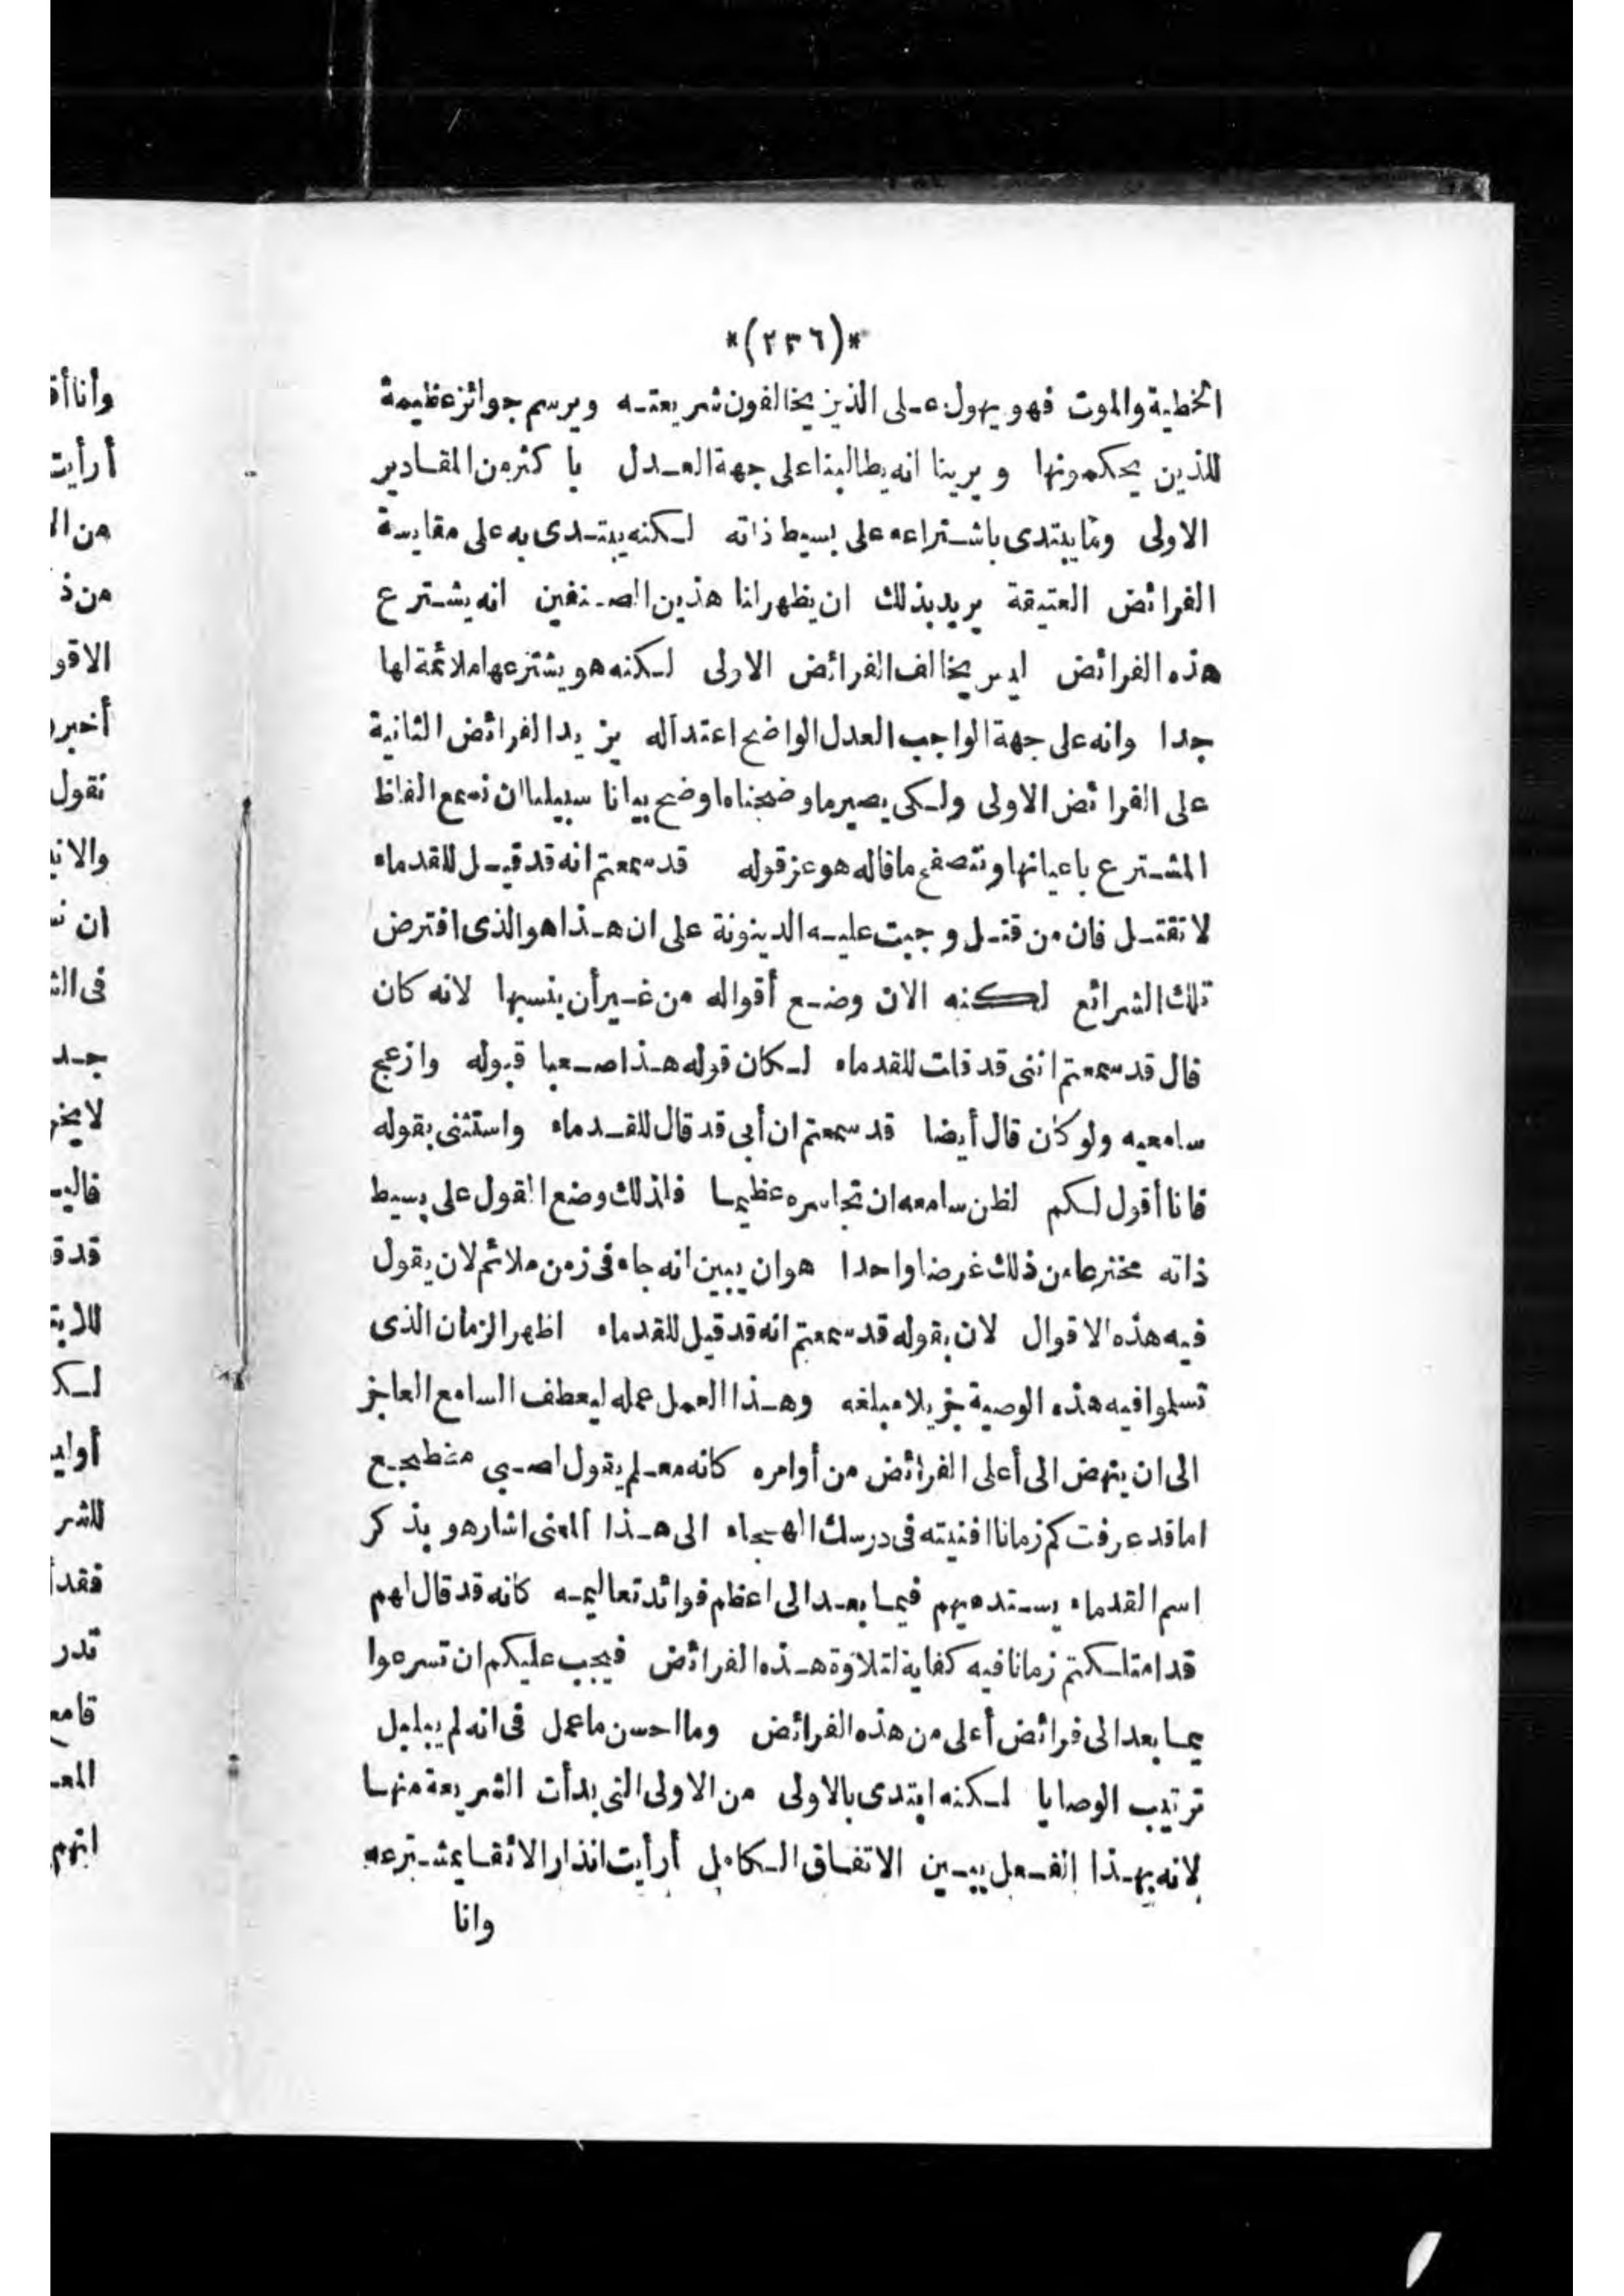 *(٢٣٦)*
الخطية والموت فهو يهول على الذين يخالفون شريعته ويرسم جوائز عظيمة
للذين يحكمونها ويرينا انه يطالبنا على جهة العدل باكثر من المقادير
الاولى وما يبتدى باشتراعه على بسيط ذاته لكنه يبتدى به على مقايسة
الفرائض العتيقة يريد بذلك ان يظهر لنا هذين الصنفين انه يشترع
هذه الفرائض ليس يخالف الفرائض الاولى لكنه هو يشترعها ملائمة لها
جدا وانه على جهة الواجب العدل الواضح اعتداله يزيد الفرائض الثانية
على الفرائض الاولى ولكى يصير ما وضحناه اوضح بيانا سبيلنا ان نسمع الفاظ
المشترع باعيانها ونتصفح ما قاله هو عز قوله قد سمعتم انه قد قيل للقدماء
لا تقتل فان من قتل وجبت عليه الدينونة على ان هذا هو الذى افترض
تلك الشرائع لكنه الان وضع أقواله من غير أن ينسبها لانه كان
قال قد سمعتم اننى قد قلت للقدماء لكان قوله هذا صعبا قبوله وازعج
سامعيه ولو كان قال أيضا قد سمعتم ان أبى قد قال للقدماء واستثنى بقوله
فانا أقول لكم لظن سامعه ان تجاسره عظيما فلذلك وضع القول على بسيط
ذاته مخترعا من ذلك غرضا واحدا هو ان يبين انه جاء فى زمن ملائم لان يقول
فيه هذه الاقوال لان بقوله قد سمعتم انه قد قيل للقدماء اظهر الزمان الذى
تسلموا فيه هذه الوصية جزيلا مبلغه وهذا العمل عمله ليعطف السامع العاجز
الى ان ينهض الى أعلى الفرائض من أوامره كانه معلم يقول لصبي مضطجع
اما قد عرفت كم زمانا افنيته فى درسك الهجاء الى هذا المعنى اشار هو بذكر
اسم القدماء يستدعيهم فيما بعد الى اعظم فوائد تعاليمه كانه قد قال لهم
قد امتلكتم زمانا فيه كفاية لتلاوة هذه الفرائض فيجب عليكم ان تسرعوا
يما بعد الى فرائض أعلى من هذه الفرائض وما احسن ما عمل فى انه لم يبلبل
ترتيب الوصايا لكنه ابتدى بالاولى من الاولى التى بدأت الشريعة منها
لانه بهذا الفعل يبين الاتفاق الكامل أرأيت انذار الاتقا بمشترعه
وانا
وأنا أق
أرأيت
من ال
من ذ
الاقو
أخبر
نقول
ان
جد
قد ق
لك
للشر
تدر
انهم